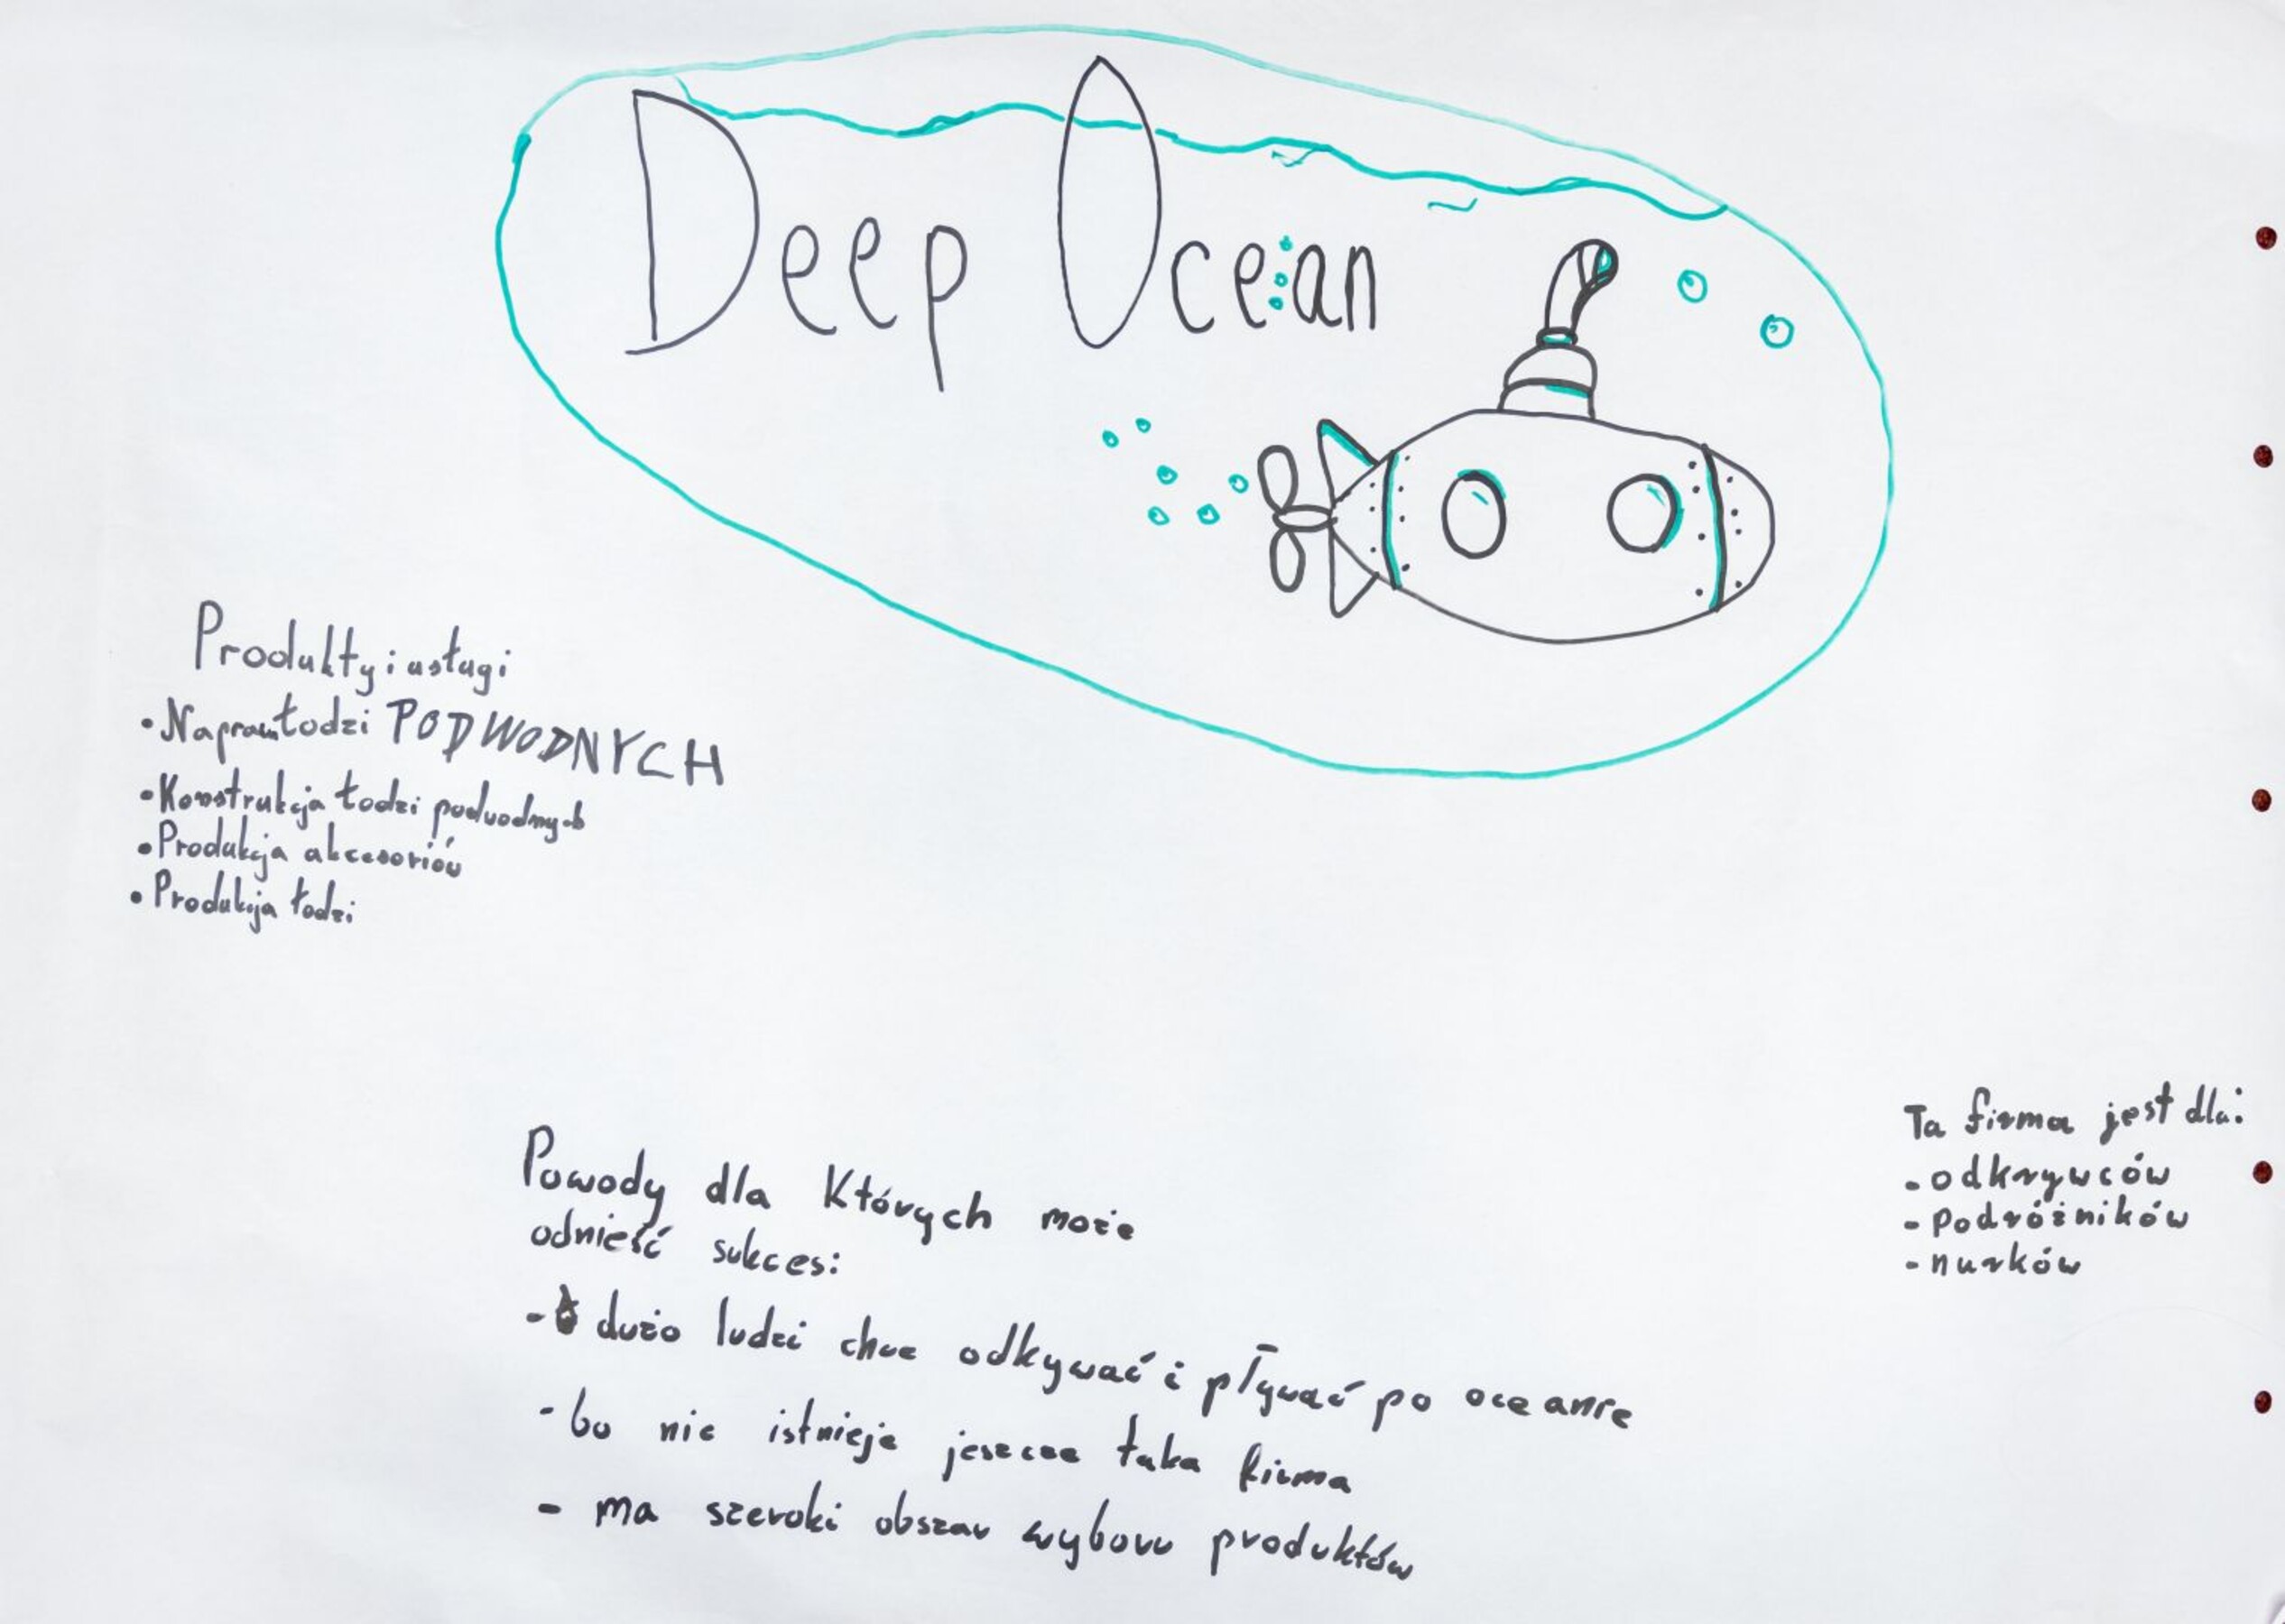 Deep Ocean
Produkty i usługi
• Napraw łodzi PODWODNYCH
• Konstrukcja łodzi podwodnych
• Produkcja akcesoriów
• Produkcja łodzi
Powody dla Których może
odnieść sukces:
- dużo ludzi chce odkywać i pływać po oceanie
- bo nie istnieje jeszcze taka firma
- ma szeroki obszar wyboru produktów
Ta firma jest dla:
- odkrywców
- podróżników
- nurków